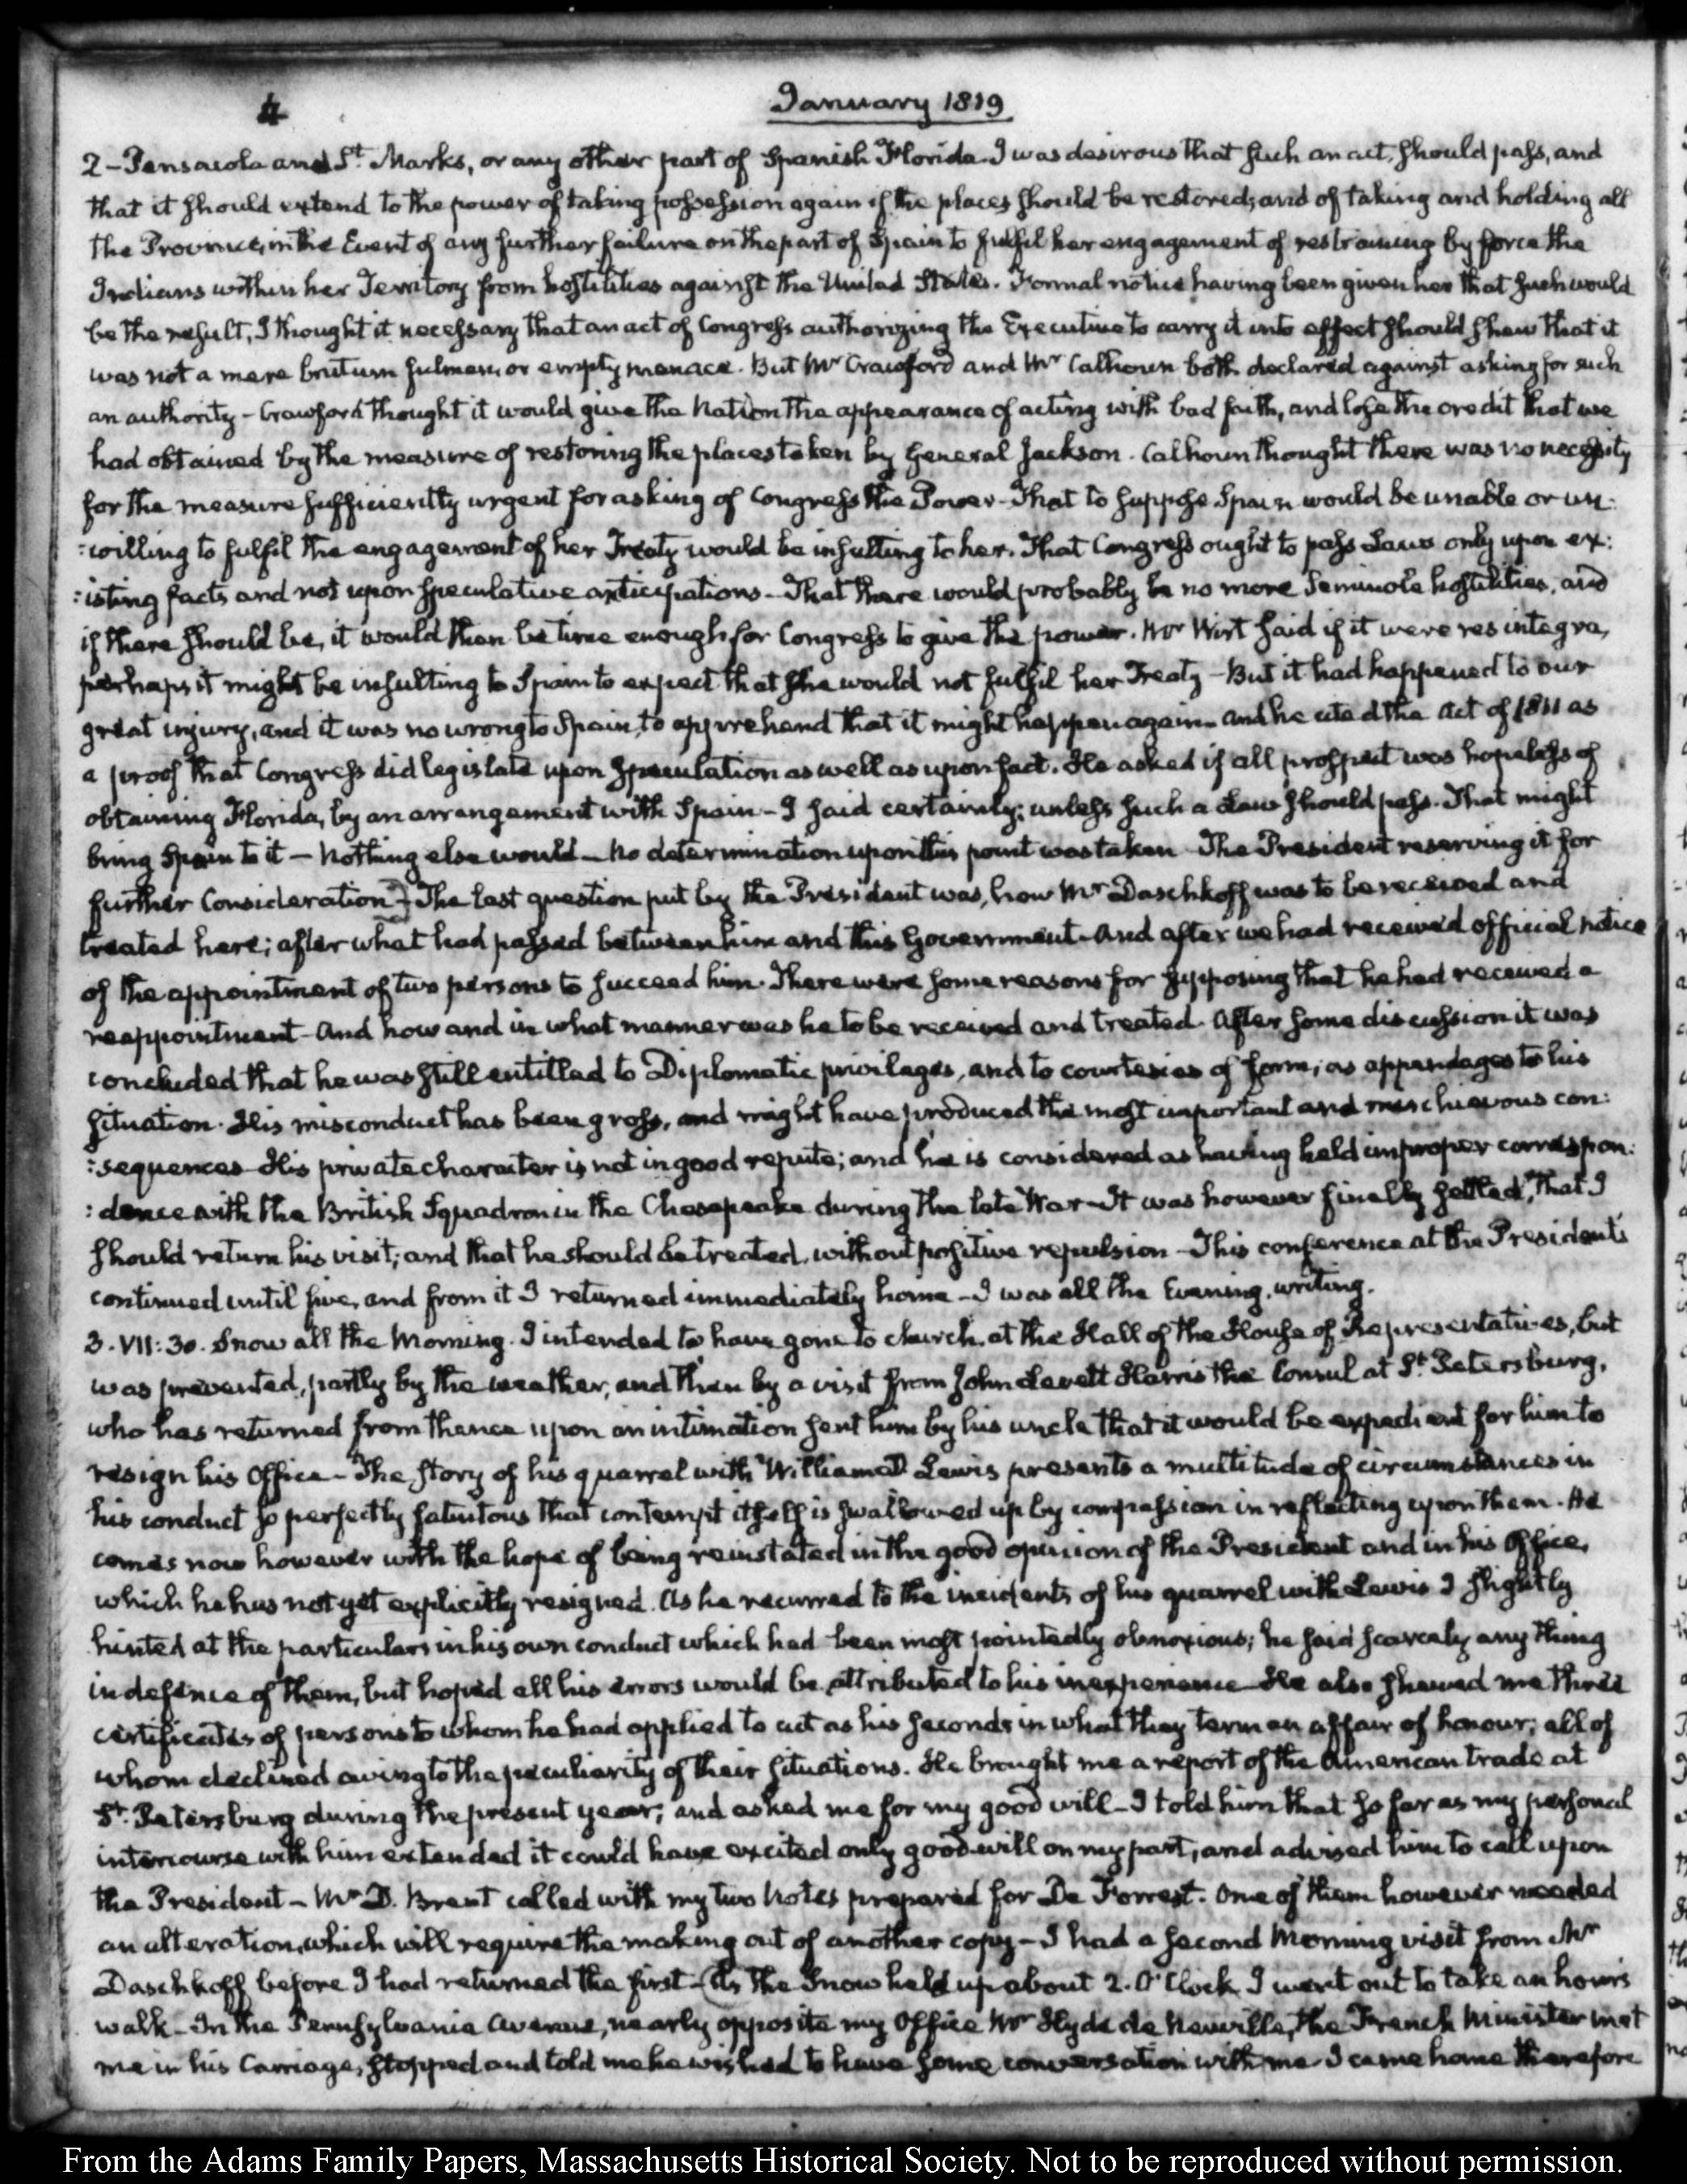 4
January 1819
2 - Pensacola and St. Marks, or any other part of Spanish Florida. I was desirous that such an act, should pass, and
that it should extend to the power of taking possession again if the places should be restored; and of taking and holding all
the Province, in the Event of any further failure on the part of Spain to fulfil her engagement of restraining by force the
Indians within her Territory from hostilities against the United States. Formal notice having been given her that such would
be the result, I thought it necessary that an act of Congress authorizing the Executive to carry it into effect should shew that it
was not a mere brutum fulmen, or empty menace. But Mr Crawford and Mr Calhoun both declared against asking for such
an authority - Crawford thought it would give the Nation the appearance of acting with bad faith, and lose the credit that we
had obtained by the measure of restoring the places taken by General Jackson. Calhoun thought there was no necessity
for the measure sufficiently urgent for asking of Congress the Power - That to suppose Spain would be unable or un:
:willing to fulfil the engagement of her Treaty would be insulting to her. That Congress ought to pass Laws only upon ex:
:isting facts and not upon speculative anticipations - That there would probably be no more Seminole hostilities, and
if there should be, it would then be time enough for Congress to give the power. Mr Wirt said if it were res integra,
perhaps it might be insulting to Spain to expect that she would not fulfil her Treaty - But it had happened to our
great injury, and it was no wrong to Spain, to apprehend that it might happen again - and he cited the act of 1811 as
a proof that Congress did legislate upon speculation as well as upon fact. He asked if all prospect was hopeless of
obtaining Florida, by an arrangement with Spain - I said certainly; unless such a Law should pass. That might
bring Spain to it - Nothing else would - No determination upon this point was taken - The President reserving it for
further Consideration - The last question put by the President was, how Mr Daschkoff was to be received and
treated here; after what had passed between him and this Government - And after we had received official notice
of the appointment of two persons to succeed him. There were some reasons for supposing that he had received a
reappointment - And how and in what manner was he to be received and treated. After some discussion it was
concluded that he was still entitled to Diplomatic privileges, and to courtesies of form, as appendages to his
situation. His misconduct has been gross, and might have produced the most important and mischievous con:
:sequences - His private character is not in good repute; and he is considered as having held improper correspon:
:dence with the British Squadron in the Chesapeake during the late War - It was however finally settled, that I
should return his visit; and that he should be treated, without positive repulsion - This conference at the President's
continued until five, and from it I returned immediately home - I was all the Evening, writing.
3. VII:30. Snow all the Morning. I intended to have gone to church, at the Hall of the House of Representatives, but
was prevented, partly by the weather, and then by a visit from John Levett Harris the Consul at St. Petersburg,
who has returned from thence upon an intimation sent him by his uncle that it would be expedient for him to
resign his Office - The story of his quarrel with William D Lewis presents a multitude of circumstances in
his conduct so perfectly fatuitous that contempt itself is swallowed up by compassion in reflecting upon them. He
comes now however with the hope of being reinstated in the good opinion of the President and in his Office,
which he has not yet explicitly resigned. As he recurred to the incidents of his quarrel with Lewis I slightly
hinted at the particulars in his own conduct which had been most pointedly obnoxious; he said scarcely any thing
in defence of them, but hoped all his errors would be attributed to his inexperience - He also shewed me three
certificates of persons to whom he had applied to act as his seconds in what they term an affair of honour; all of
whom declined owing to the peculiarity of their situations. He brought me a report of the American trade at
St. Petersburg during the present year; and asked me for my good will - I told him that so far as my personal
intercourse with him extended it could have excited only good-will on my part, and advised him to call upon
the President - Mr D. Brent called with my two Notes prepared for De Forrest. One of them however needed
an alteration, which will require the making out of another copy - I had a second Morning visit from Mr
Daschkoff before I had returned the first - (As the Snow held up about 2. O'Clock I went out to take an hour's
walk - In the Pennsylvania Avenue, nearly opposite my Office Mr Hyde de Neuville, the French Minister met
me in his Carriage, stopped and told me he wished to have some conversation with me - I came home therefore
From the Adams Family Papers, Massachusetts Historical Society. Not to be reproduced without permission.